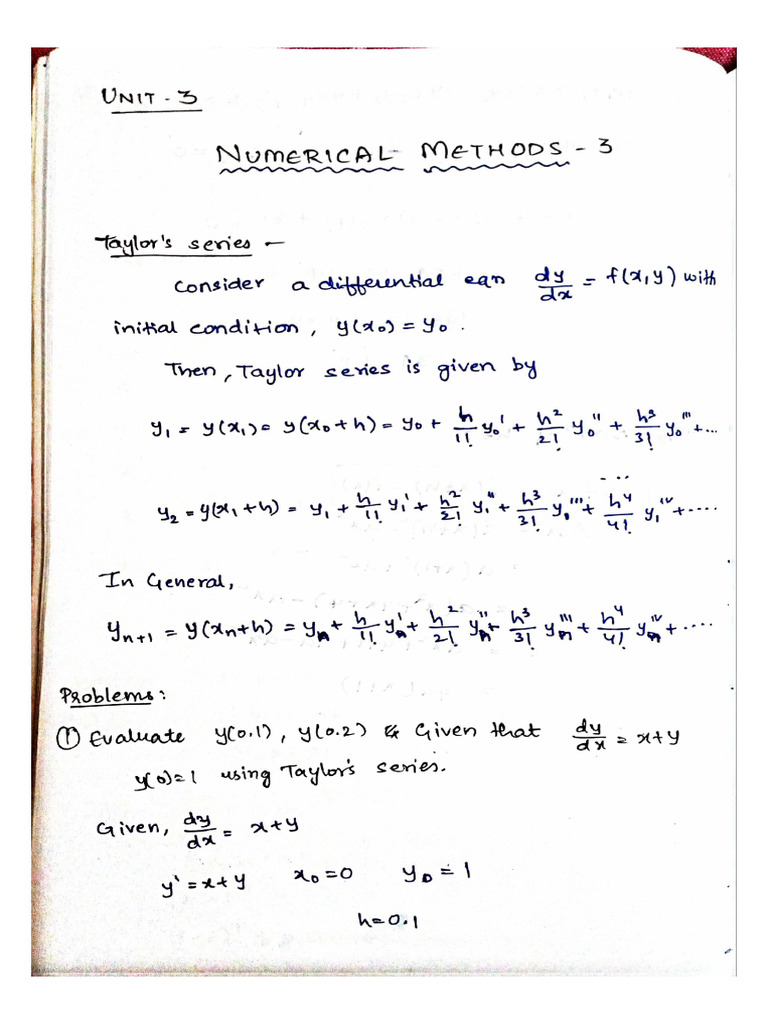 UNIT - 3
NUMERICAL METHODS - 3
Taylor's series -
Consider a differential eqn dy/dx = f(x,y) with
initial condition, y(x₀) = y₀.
Then, Taylor series is given by
y₁ = y(x₁) = y(x₀+h) = y₀ + h/1! y₀' + h²/2! y₀'' + h³/3! y₀''' + ...
y₂ = y(x₁+h) = y₁ + h/1! y₁' + h²/2! y₁'' + h³/3! y₁''' + h⁴/4! y₁ⁱᵛ + ....
In General,
yₙ₊₁ = y(xₙ+h) = yₙ + h/1! yₙ' + h²/2! yₙ'' + h³/3! yₙ''' + h⁴/4! yₙⁱᵛ + ....
Problems:
① Evaluate y(0.1), y(0.2) & Given that dy/dx = x+y
y(0)=1 using Taylor's series.
Given, dy/dx = x+y
y' = x+y x₀=0 y₀=1
h=0.1